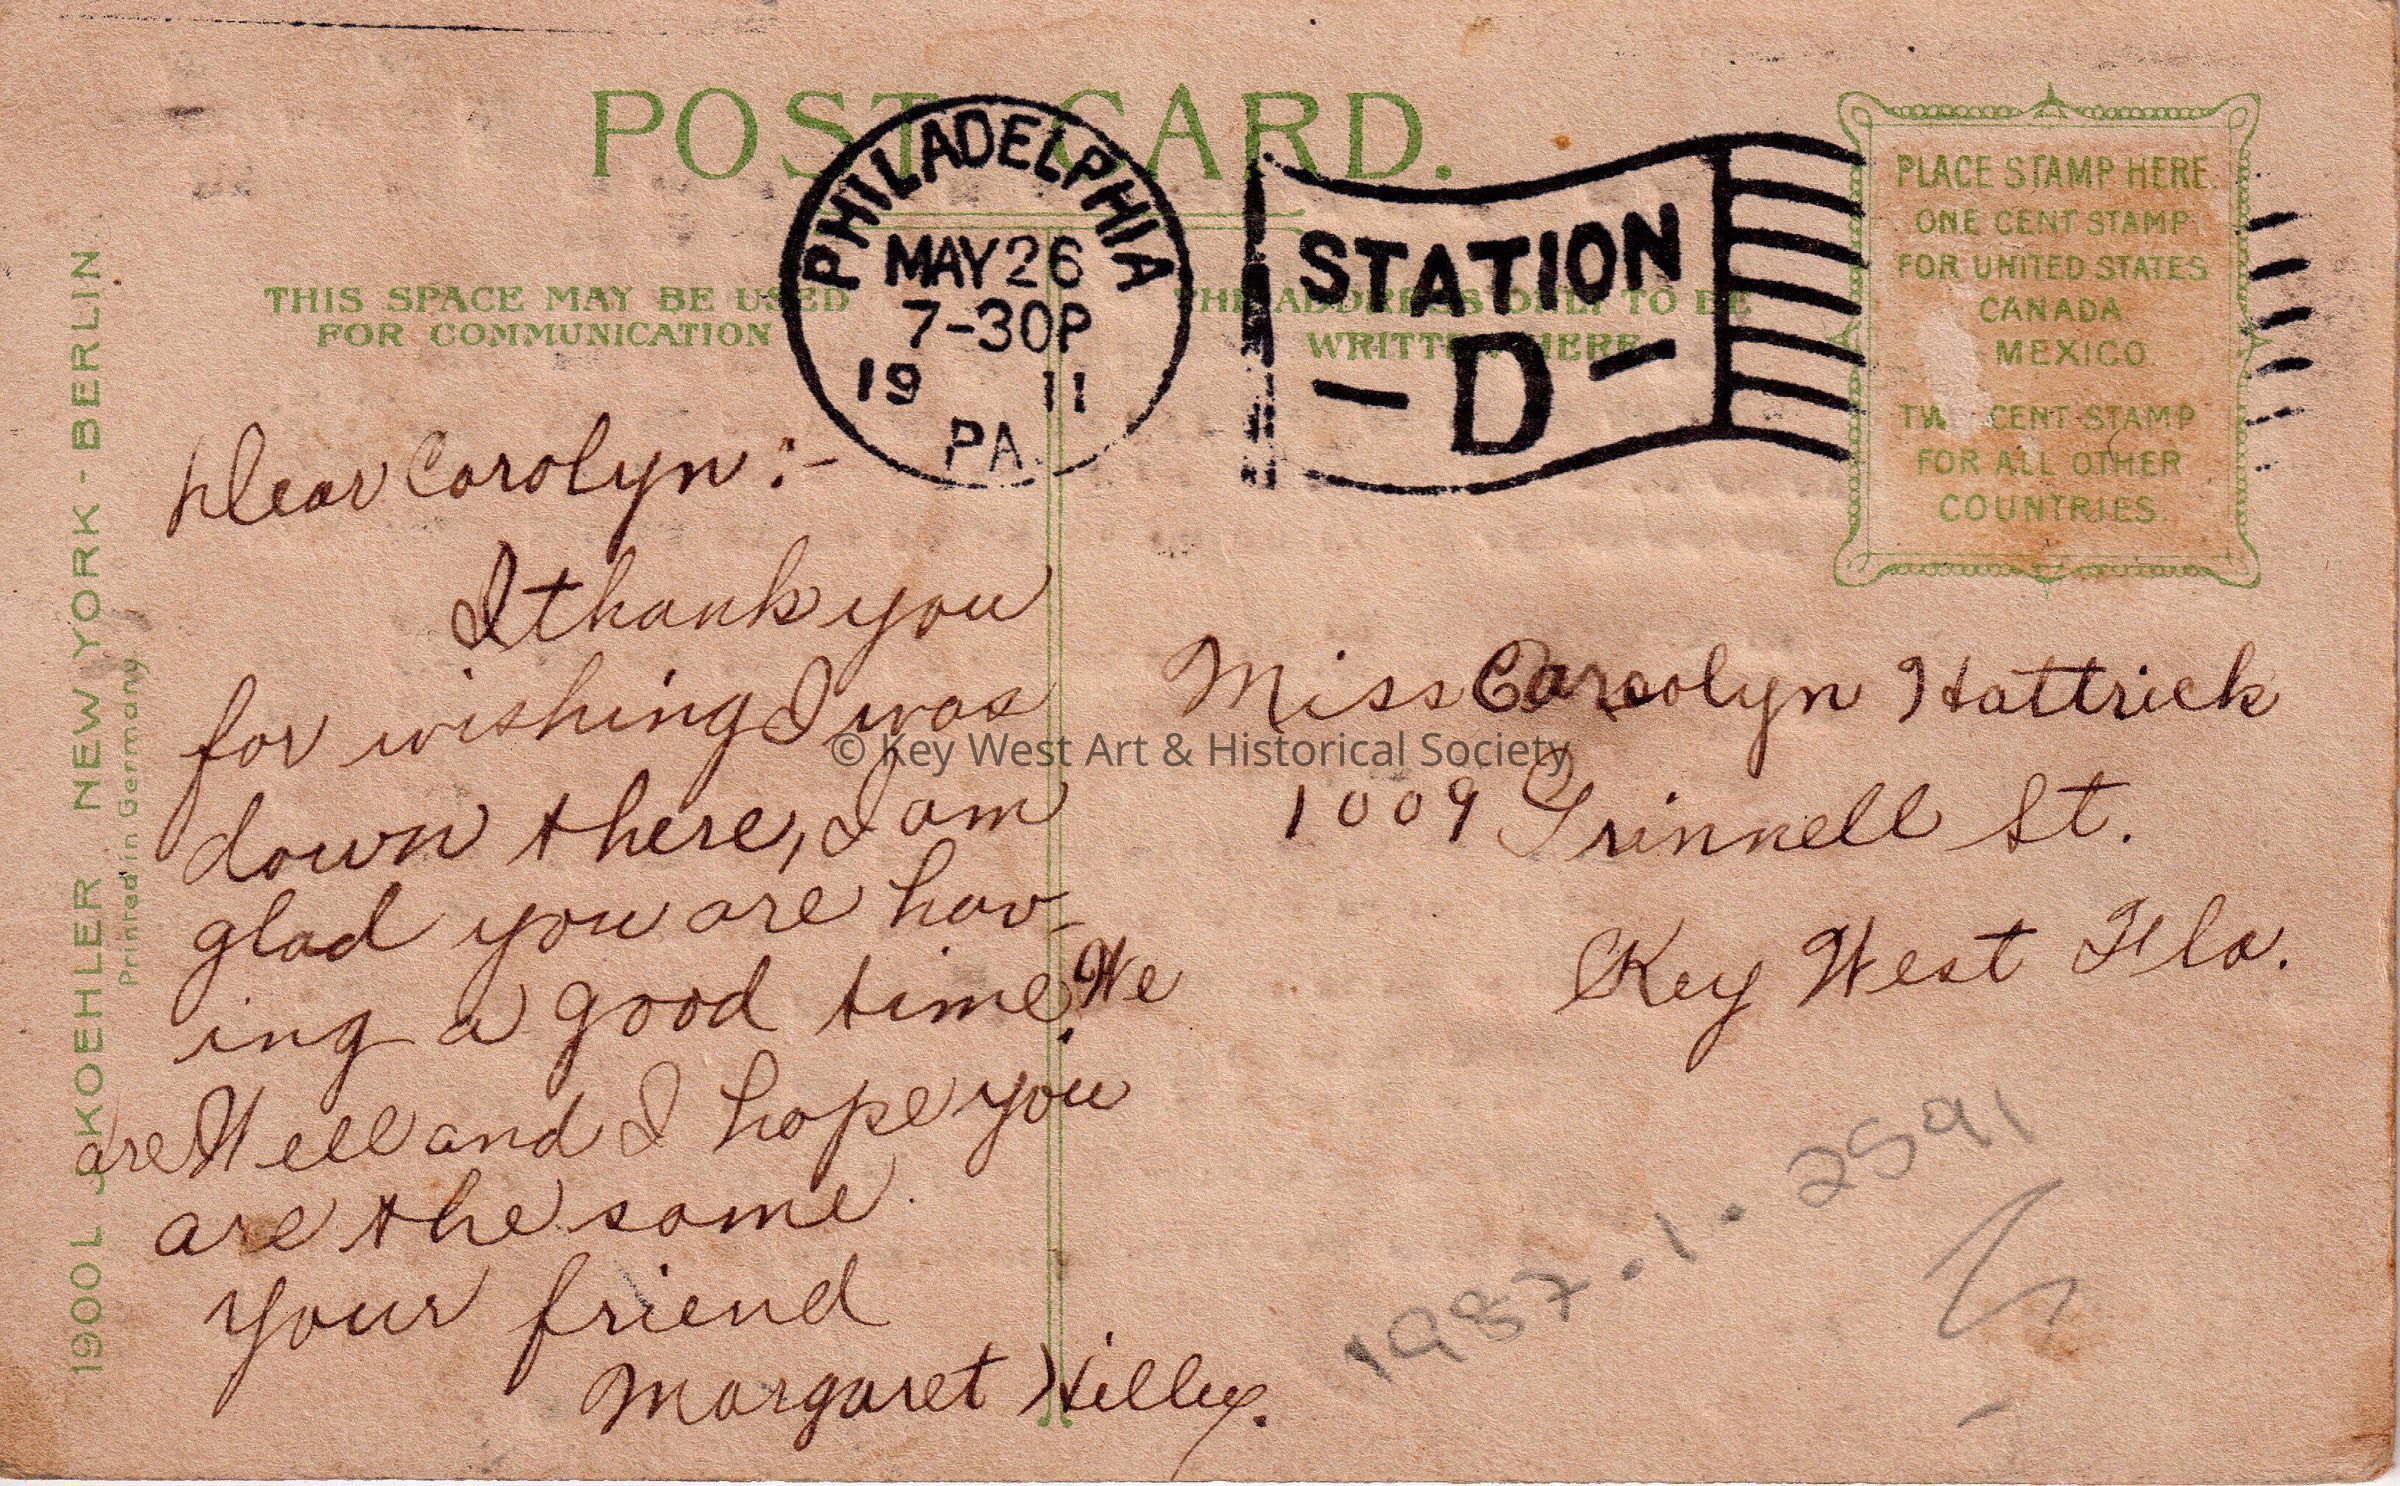 POST CARD.
PHILADELPHIA
MAY 26
7-30P
19 11
PA.
STATION
- D -
PLACE STAMP HERE.
ONE CENT STAMP
FOR UNITED STATES
CANADA
MEXICO.
TWO CENT STAMP
FOR ALL OTHER
COUNTRIES.
THIS SPACE MAY BE USED
FOR COMMUNICATION
THE ADDRESS ONLY TO BE
WRITTEN HERE
1900 L J KOEHLER NEW YORK - BERLIN.
Printed in Germany.
Dear Carolyn :-
I thank you
for wishing I was
down there, I am
glad you are hav-
ing a good time. We
are Well and I hope you
are the same.
your friend
Margaret Hilley.
Miss Carolyn Hattrick
1009 Grinnell St.
Key West Fla.
1987.1.2591
© Key West Art & Historical Society